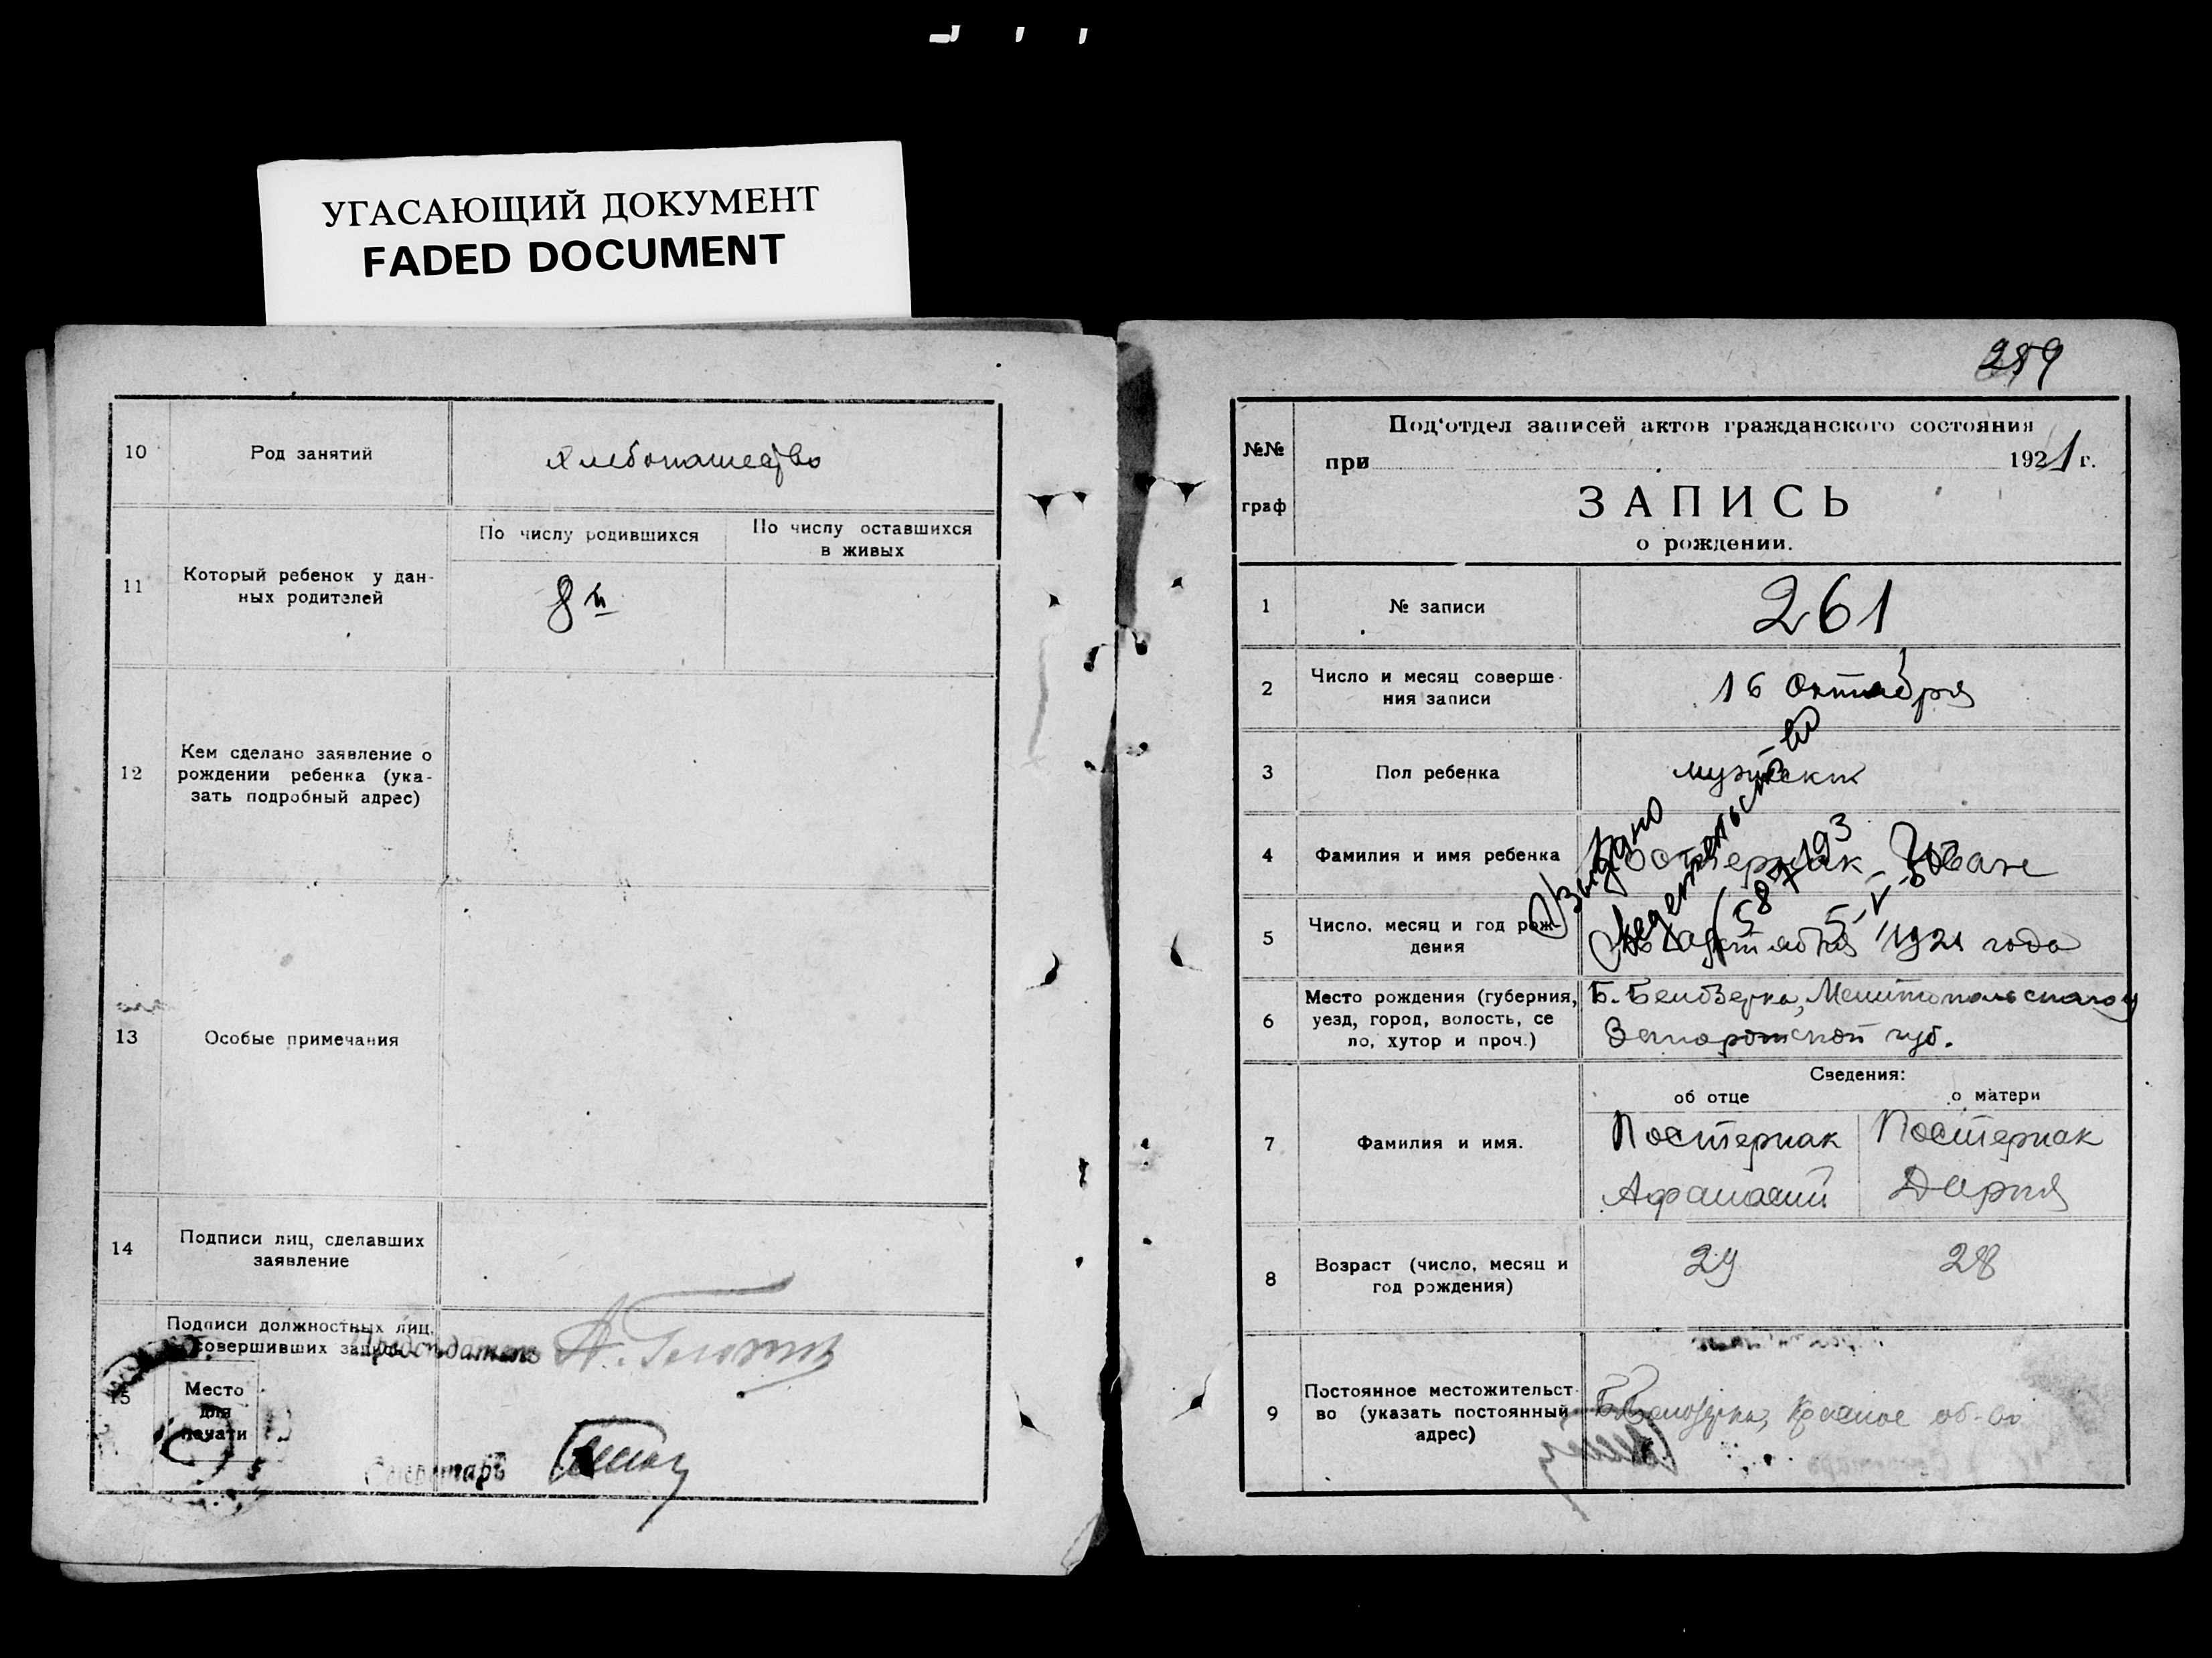 УГАСАЮЩИЙ ДОКУМЕНТ
FADED DOCUMENT
10
Род занятий
хлебопашество
11
Который ребенок у дан-
ных родителей
По числу родившихся
По числу оставшихся
в живых
8й
12
Кем сделано заявление о
рождении ребенка (ука-
зать подробный адрес)
13
Особые примечания
14
Подписи лиц, сделавших
заявление
15
Подписи должностных лиц,
совершивших запись
Председатель
Место
для
печати
Секретарь
289
№№
граф
Под'отдел записей актов гражданского состояния
при 1921 г.
ЗАПИСЬ
о рождении.
1
№ записи
261
2
Число и месяц соверше-
ния записи
16 Октября
3
Пол ребенка
мужески
4
Фамилия и имя ребенка
Постернак Иван
Выдано
свидетельство
5
Число, месяц и год рож-
дения
октября 1921 года
6
Место рождения (губерния,
уезд, город, волость, се
ло, хутор и проч.)
Б. Белозерка, Мелитопольского у
Запорожской губ.
Сведения:
об отце
о матери
7
Фамилия и имя.
Постернак
Афанасий
Постернак
Дария
8
Возраст (число, месяц и
год рождения)
29
28
9
Постоянное местожительст-
во (указать постоянный
адрес)
Б. Белозерка, Красное об-во